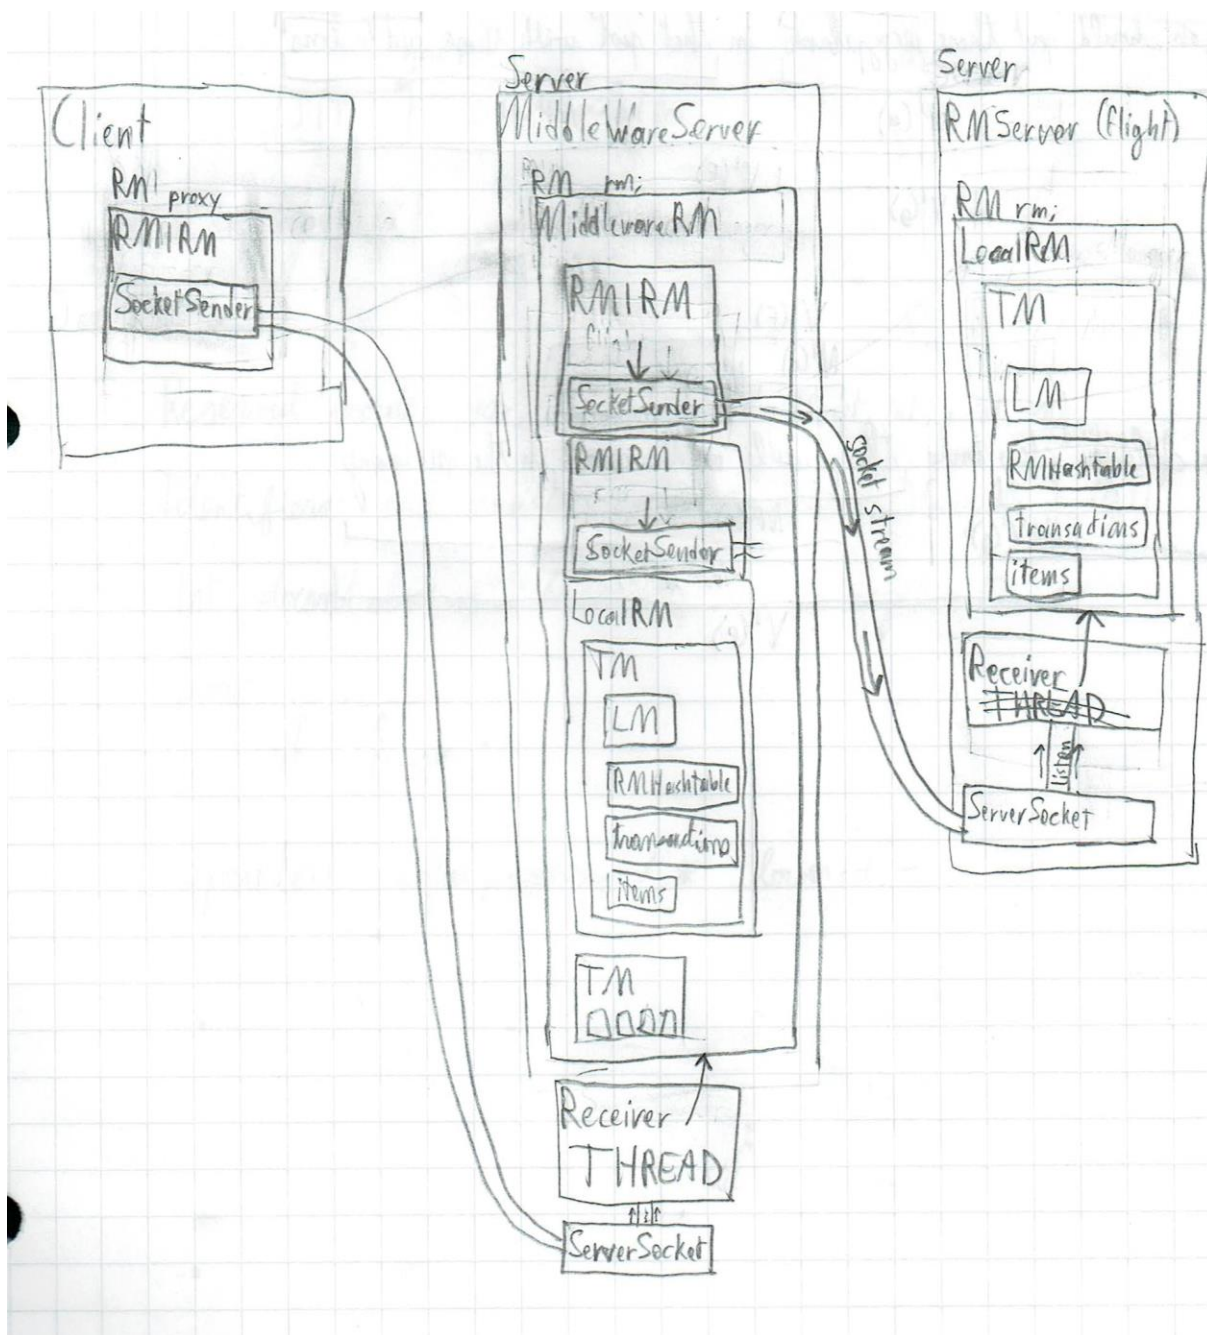 Client
RM proxy
RMIRM
SocketSender
Server
MiddleWareServer
RM rmi
MiddlewareRM
RMIRM
SocketSender
RMIRM
SocketSender
LocalRM
TM
LM
RMHashtable
transactions
items
TM
Receiver
THREAD
ServerSocket
socket stream
Server
RMServer (flight)
RM rmi
LocalRM
TM
LM
RMHashtable
transactions
items
Receiver
THREAD
listen
ServerSocket